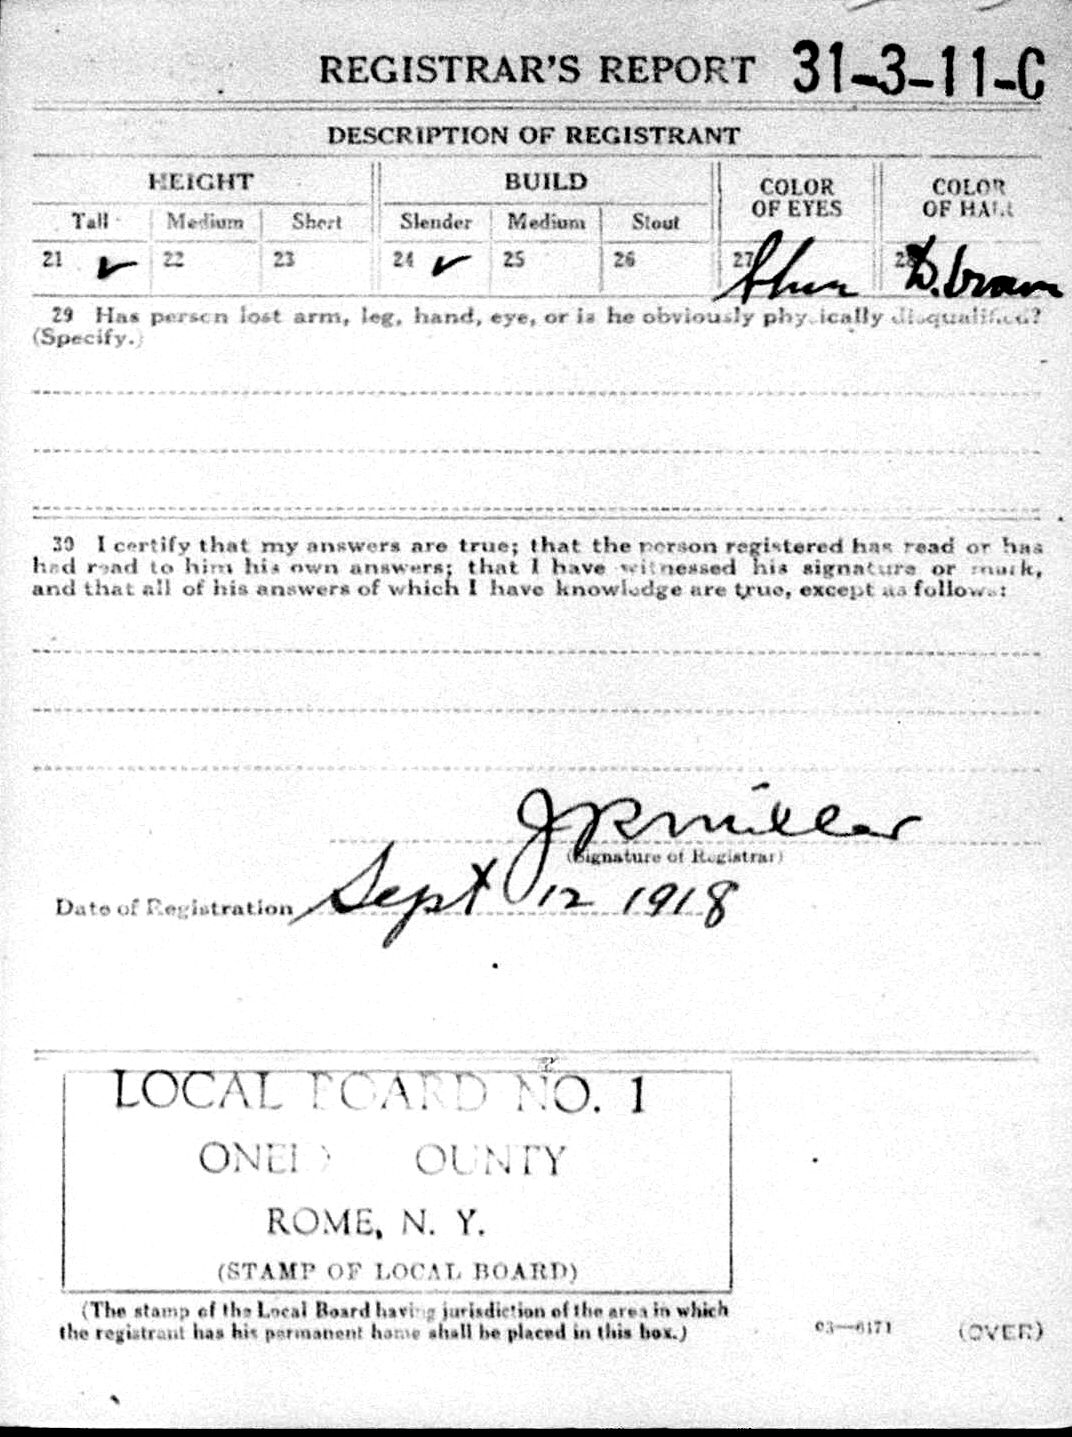 REGISTRAR'S REPORT 31-3-11-C
DESCRIPTION OF REGISTRANT
HEIGHT BUILD COLOR OF EYES COLOR OF HAIR
Tall Medium Short Slender Medium Stout
21 ✓ 22 23 24 ✓ 25 26 27 28 D. brown
29 Has person lost arm, leg, hand, eye, or is he obviously physically disqualified?
(Specify.)
30 I certify that my answers are true; that the person registered has read or has
had read to him his own answers; that I have witnessed his signature or mark,
and that all of his answers of which I have knowledge are true, except as follows:
J R Miller
(Signature of Registrar)
Date of Registration Sept 12 1918
LOCAL BOARD NO. 1
ONEIDA COUNTY
ROME, N. Y.
(STAMP OF LOCAL BOARD)
(The stamp of the Local Board having jurisdiction of the area in which
the registrant has his permanent home shall be placed in this box.)
03—6171 (OVER)